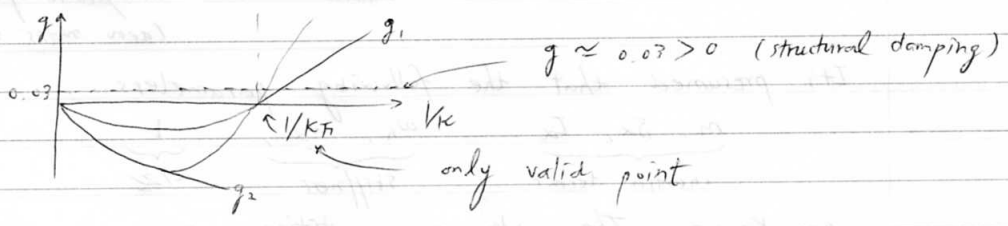 g
g₁
g ≃ 0.03 > 0 (structural damping)
0.03
1/k
1/k_F
only valid point
g₂